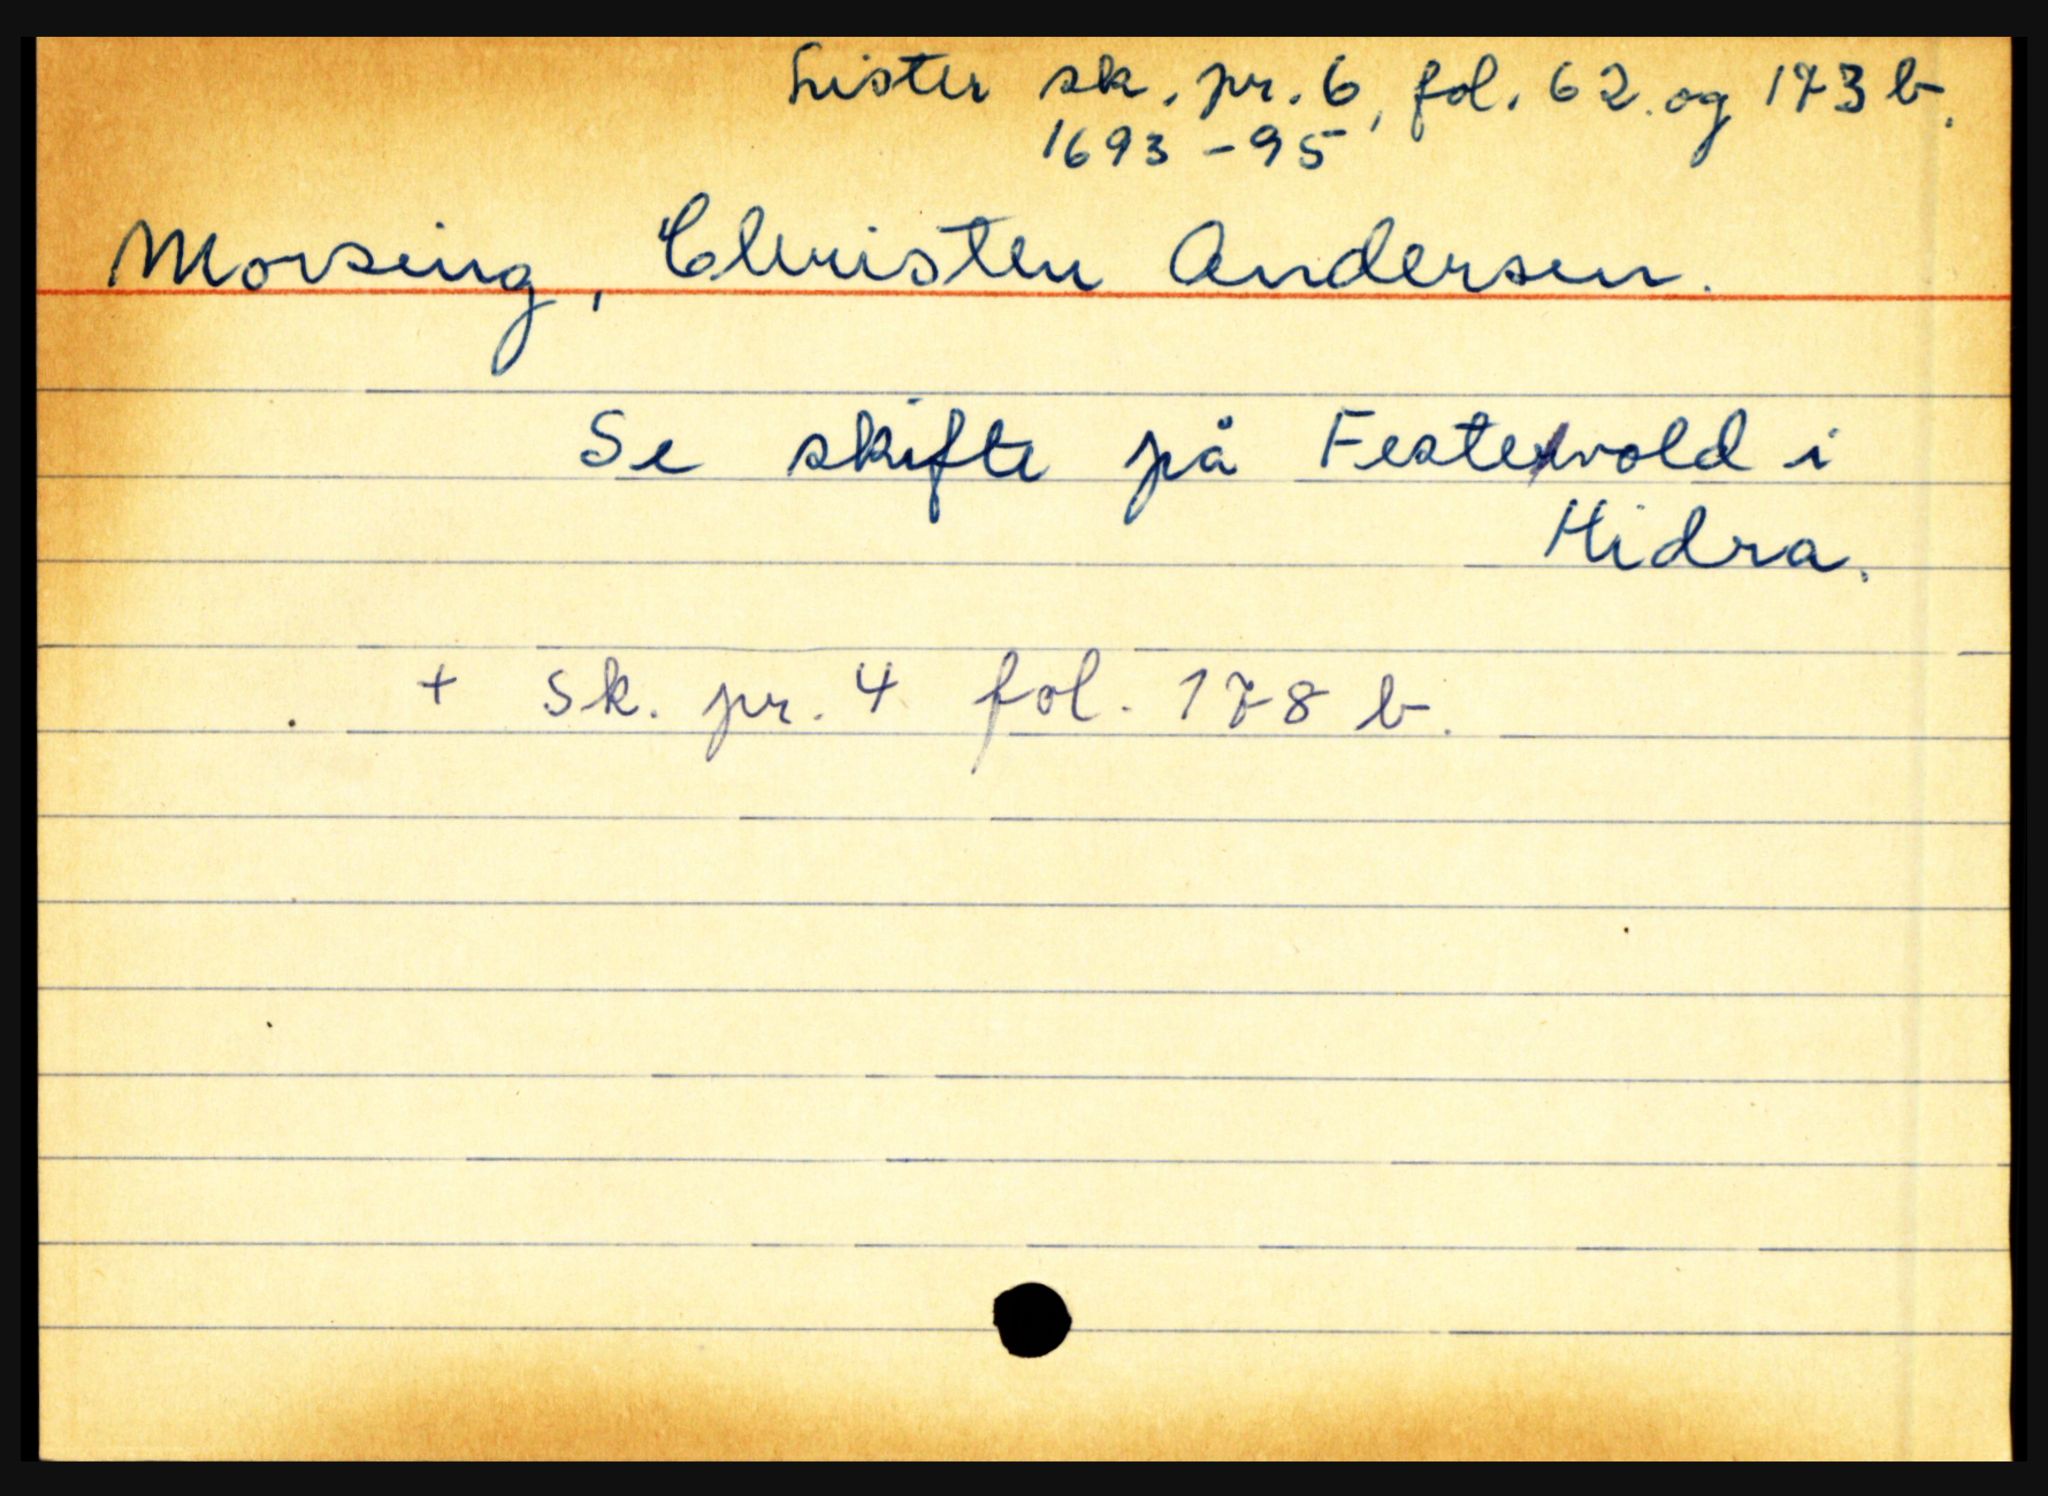 Lister sk. pr. 6, fol. 62. og 173 b.
1693-95
Morsing, Christen Andersen.
Se skifte på Festevold i
Hidra.
+ Sk. pr. 4 fol. 178 b.